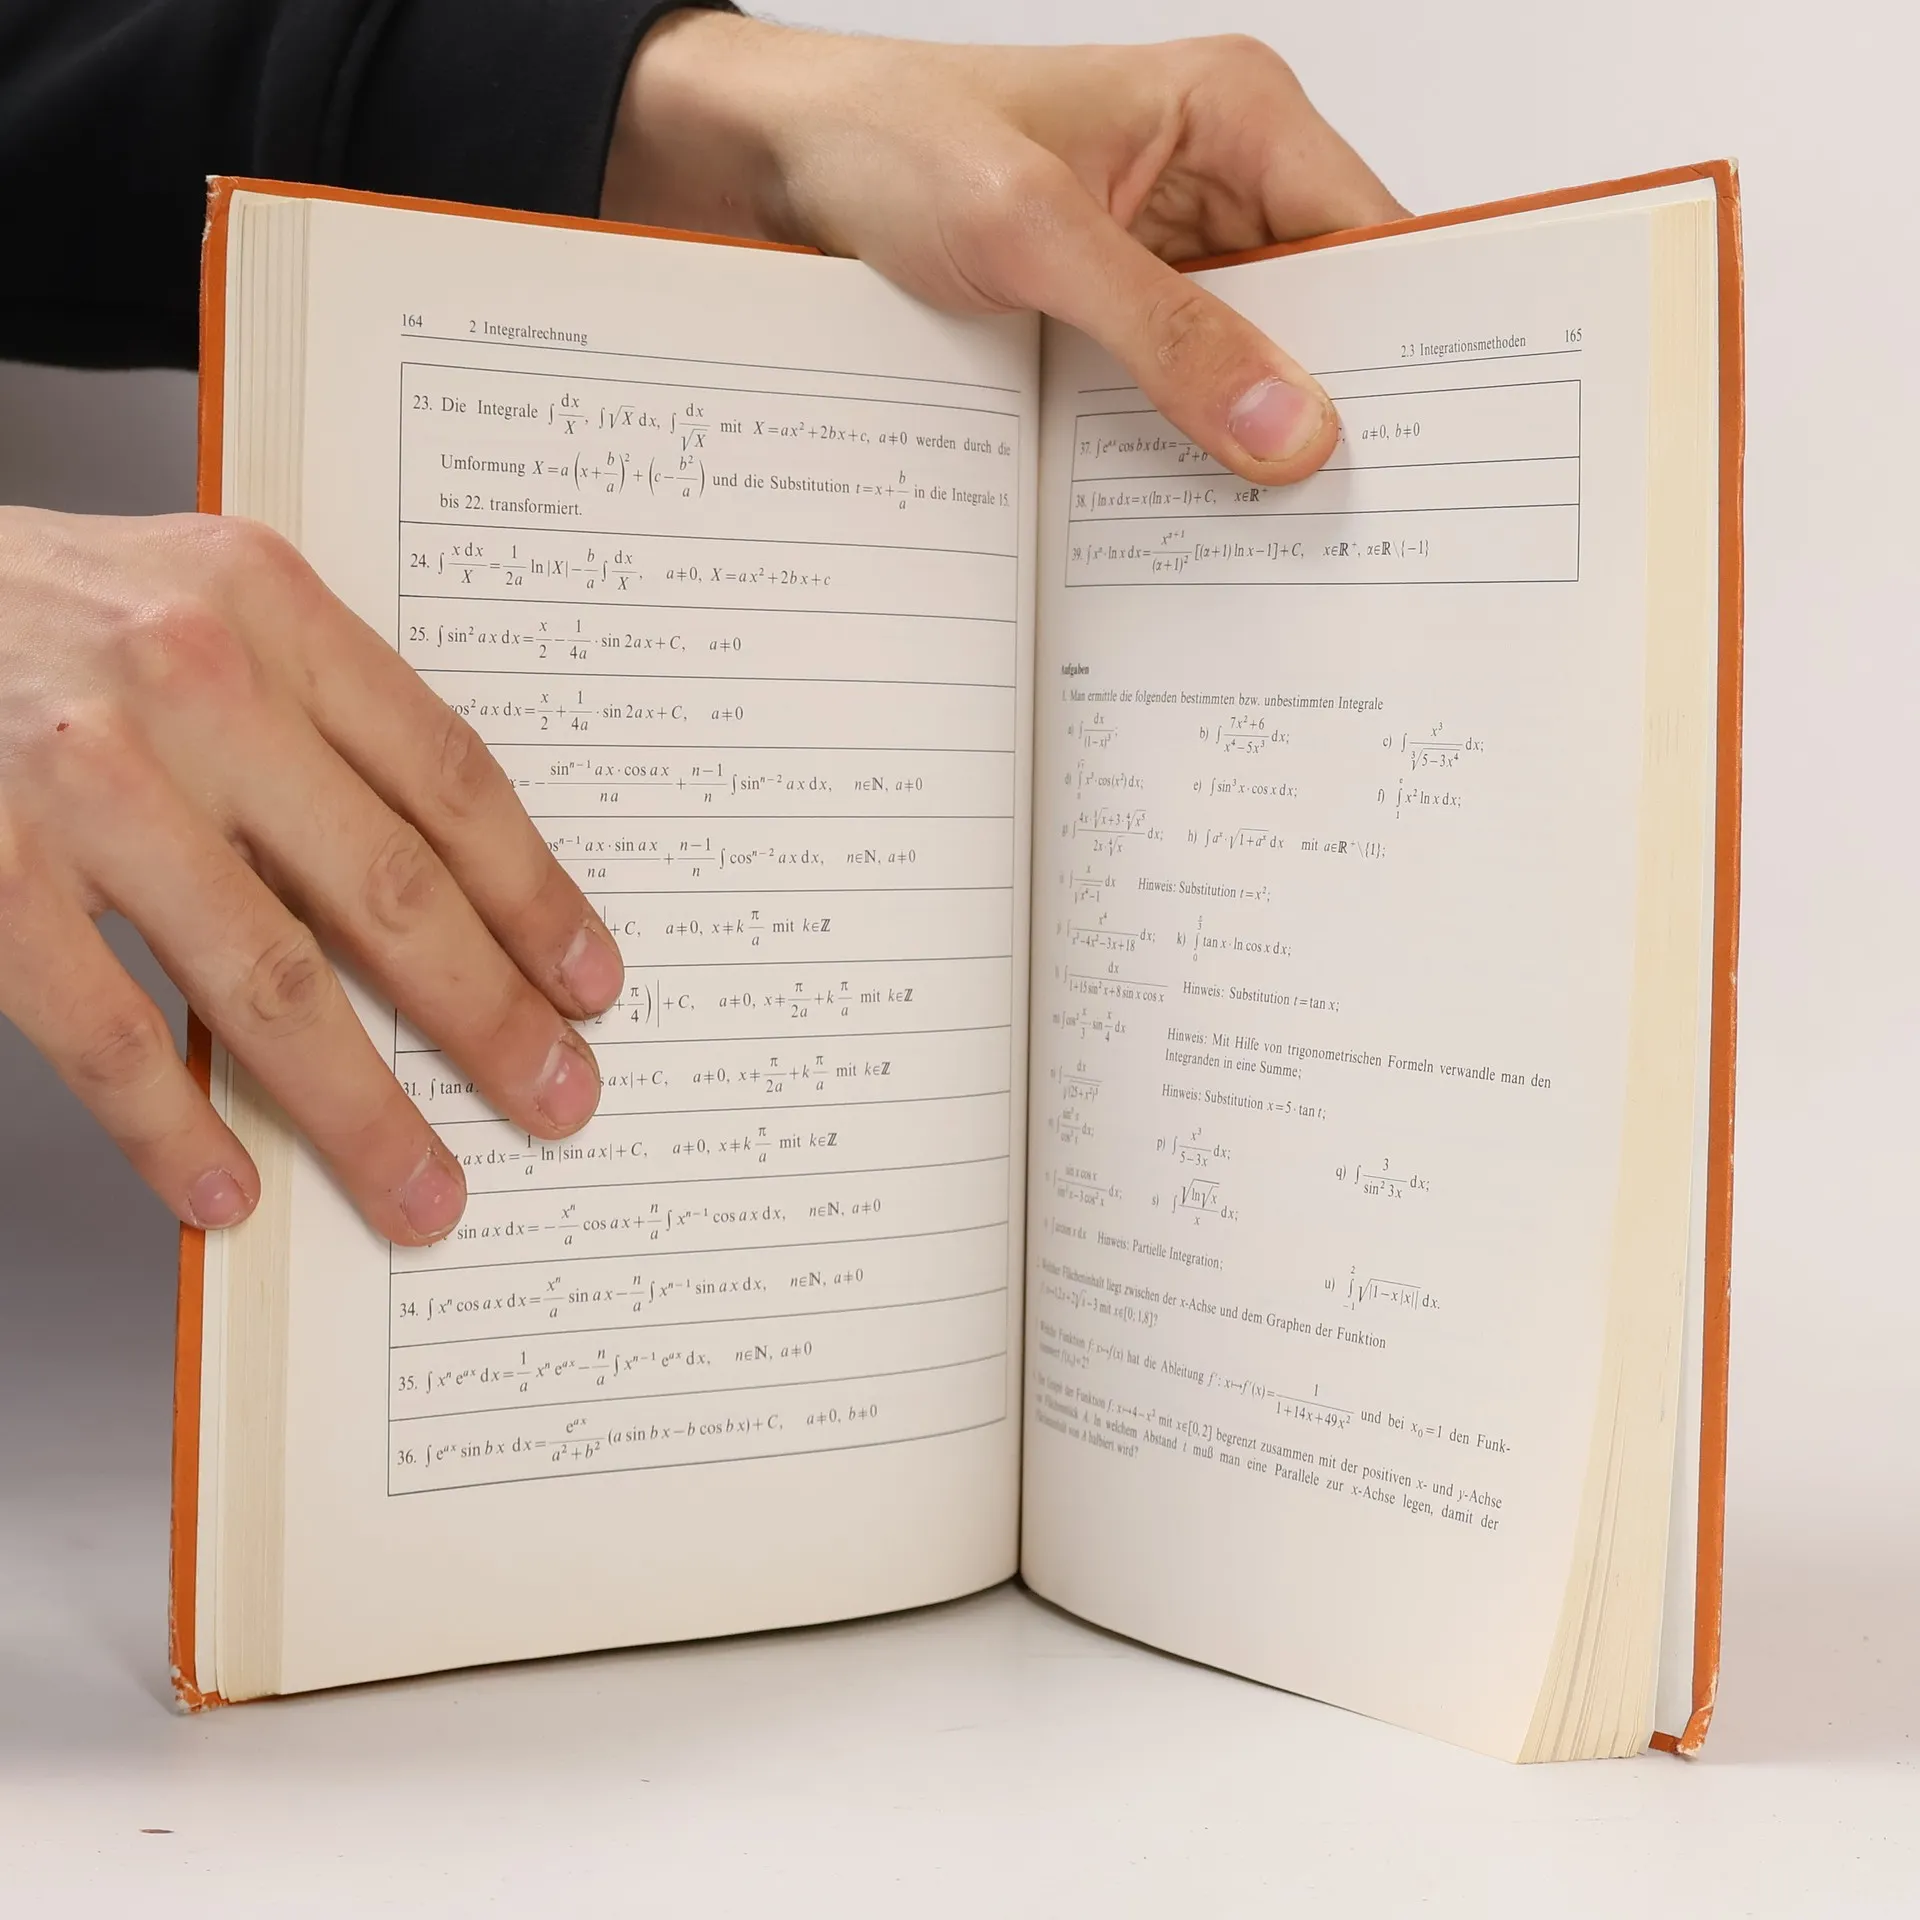 164 2 Integralrechnung
23. Die Integrale ∫ dx/X, ∫ √X dx, ∫ dx/√X mit X=ax²+2bx+c, a≠0 werden durch die
Umformung X=a(x+b/a)²+(c−b²/a) und die Substitution t=x+b/a in die Integrale 15.
bis 22. transformiert.
24. ∫ x dx/X = 1/2a ln|X| − b/a ∫ dx/X, a≠0, X=ax²+2bx+c
25. ∫ sin² ax dx = x/2 − 1/4a · sin 2ax + C, a≠0
os² ax dx = x/2 + 1/4a · sin 2ax + C, a≠0
= − sinⁿ⁻¹ ax · cos ax/na + n−1/n ∫ sinⁿ⁻² ax dx, n∈ℕ, a≠0
osⁿ⁻¹ ax · sin ax/na + n−1/n ∫ cosⁿ⁻² ax dx, n∈ℕ, a≠0
| + C, a≠0, x≠k π/a mit k∈ℤ
+ π/4)| + C, a≠0, x≠ π/2a + k π/a mit k∈ℤ
31. ∫ tan a s ax| + C, a≠0, x≠ π/2a + k π/a mit k∈ℤ
ax dx = 1/a ln|sin ax| + C, a≠0, x≠k π/a mit k∈ℤ
sin ax dx = − xⁿ/a cos ax + n/a ∫ xⁿ⁻¹ cos ax dx, n∈ℕ, a≠0
34. ∫ xⁿ cos ax dx = xⁿ/a sin ax − n/a ∫ xⁿ⁻¹ sin ax dx, n∈ℕ, a≠0
35. ∫ xⁿ eᵃˣ dx = 1/a xⁿ eᵃˣ − n/a ∫ xⁿ⁻¹ eᵃˣ dx, n∈ℕ, a≠0
36. ∫ eᵃˣ sin bx dx = eᵃˣ/a²+b² (a sin bx − b cos bx) + C, a≠0, b≠0
2.3 Integrationsmethoden 165
37. ∫ eᵃˣ cos bx dx = /a²+b C, a≠0, b≠0
38. ∫ ln x dx = x(ln x−1) + C, x∈ℝ⁺
39. ∫ x^α · ln x dx = x^(α+1)/(α+1)² [(α+1) ln x−1] + C, x∈ℝ⁺, α∈ℝ\{−1}
Aufgaben
1. Man ermittle die folgenden bestimmten bzw. unbestimmten Integrale
a) ∫ dx/(1−x)³; b) ∫ 7x²+6/x⁴−5x³ dx; c) ∫ x³/∛(5−3x⁴) dx;
d) ∫ x³·cos(x²) dx; e) ∫ sin³ x · cos x dx; f) ∫₁ᵉ x² ln x dx;
dx; h) ∫ aˣ · √(1+aˣ) dx mit a∈ℝ⁺\{1};
∫ x/√(x⁴−1) dx Hinweis: Substitution t=x²;
∫ x⁴/x³−4x²−3x+18 dx; k) ∫ tan x · ln cos x dx;
∫ dx/1+15 sin² x+8 sin x cos x Hinweis: Substitution t=tan x;
m) ∫ cos² x/3 · sin x/4 dx Hinweis: Mit Hilfe von trigonometrischen Formeln verwandle man den
Integranden in eine Summe;
∫ dx/√(25+x²)³ Hinweis: Substitution x=5·tan t;
dx; p) ∫ x³/5−3x dx; q) ∫ 3/sin² 3x dx;
∫ sin x cos x/sin² x−3 cos² x dx; s) ∫ √(ln √x)/x dx;
dx Hinweis: Partielle Integration; u) ∫₋₁² √|1−x|x|| dx.
Welcher Flächeninhalt liegt zwischen der x-Achse und dem Graphen der Funktion
−3 mit x∈[0; 1,8]?
Welche Funktion f: x↦f(x) hat die Ableitung f′: x↦f′(x)= 1/1+14x+49x² und bei x₀=1 den Funk-
tionswert f(x₀)=2?
Der Graph der Funktion f: x↦4−x² mit x∈[0,2] begrenzt zusammen mit der positiven x- und y-Achse
ein Flächenstück A. In welchem Abstand t muß man eine Parallele zur x-Achse legen, damit der
Flächeninhalt von A halbiert wird?